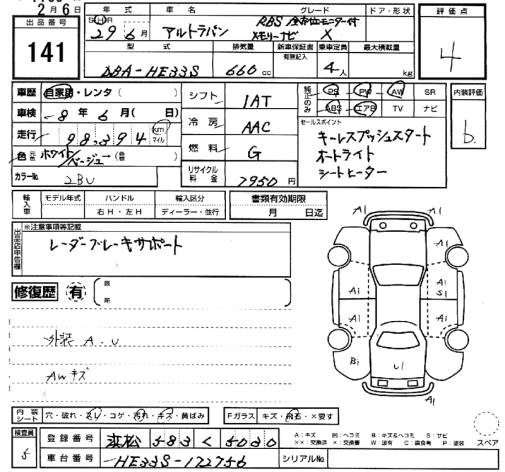 2月6日
出品番号
141
年式
車名
グレード
ドア・形状
評価点
29年6月
アルトラパン
RBS 全方位モニター付
メモリーナビ X
4
型式
排気量
新車保証書
有無記入
乗車定員
最大積載量
DBA-HE33S
660cc
4人
kg
車歴
自家用・レンタ( )
車検
8年6月( 日)
走行
98,394
km
マイル
色
ホワイト/ベージュー
カラーNo.
2BU
シフト
IAT
冷房
AAC
燃料
G
リサイクル料金
7950円
純正のみ
PS PW AW SR
ABS エアB TV ナビ
セールスポイント
キーレスプッシュスタート
オートライト
シートヒーター
内装評価
b
輸入車
モデル年式
ハンドル
輸入区分
右H・左H
ディーラー・並行
書類有効期限
月 日迄
※注意事項等記載
レーダーブレーキサポート
修復歴
有
箇所
外装 A.U
AWキズ
A1 A1
A1
A1
S1
A1
A1
B1
U1
A1
A1
内装シート
穴・破れ・スレ・コゲ・汚れ・キズ・黄ばみ
Fガラス
キズ・飛石・×要す
検査員
5
登録番号
浜松 583 く 5030
車台番号
HE33S-172756
シリアルNo.
A:キズ
B:キズ&ヘコミ
S:サビ
××:交換済
×:要交換
W:波有
C:腐食有
P:塗装
スペア